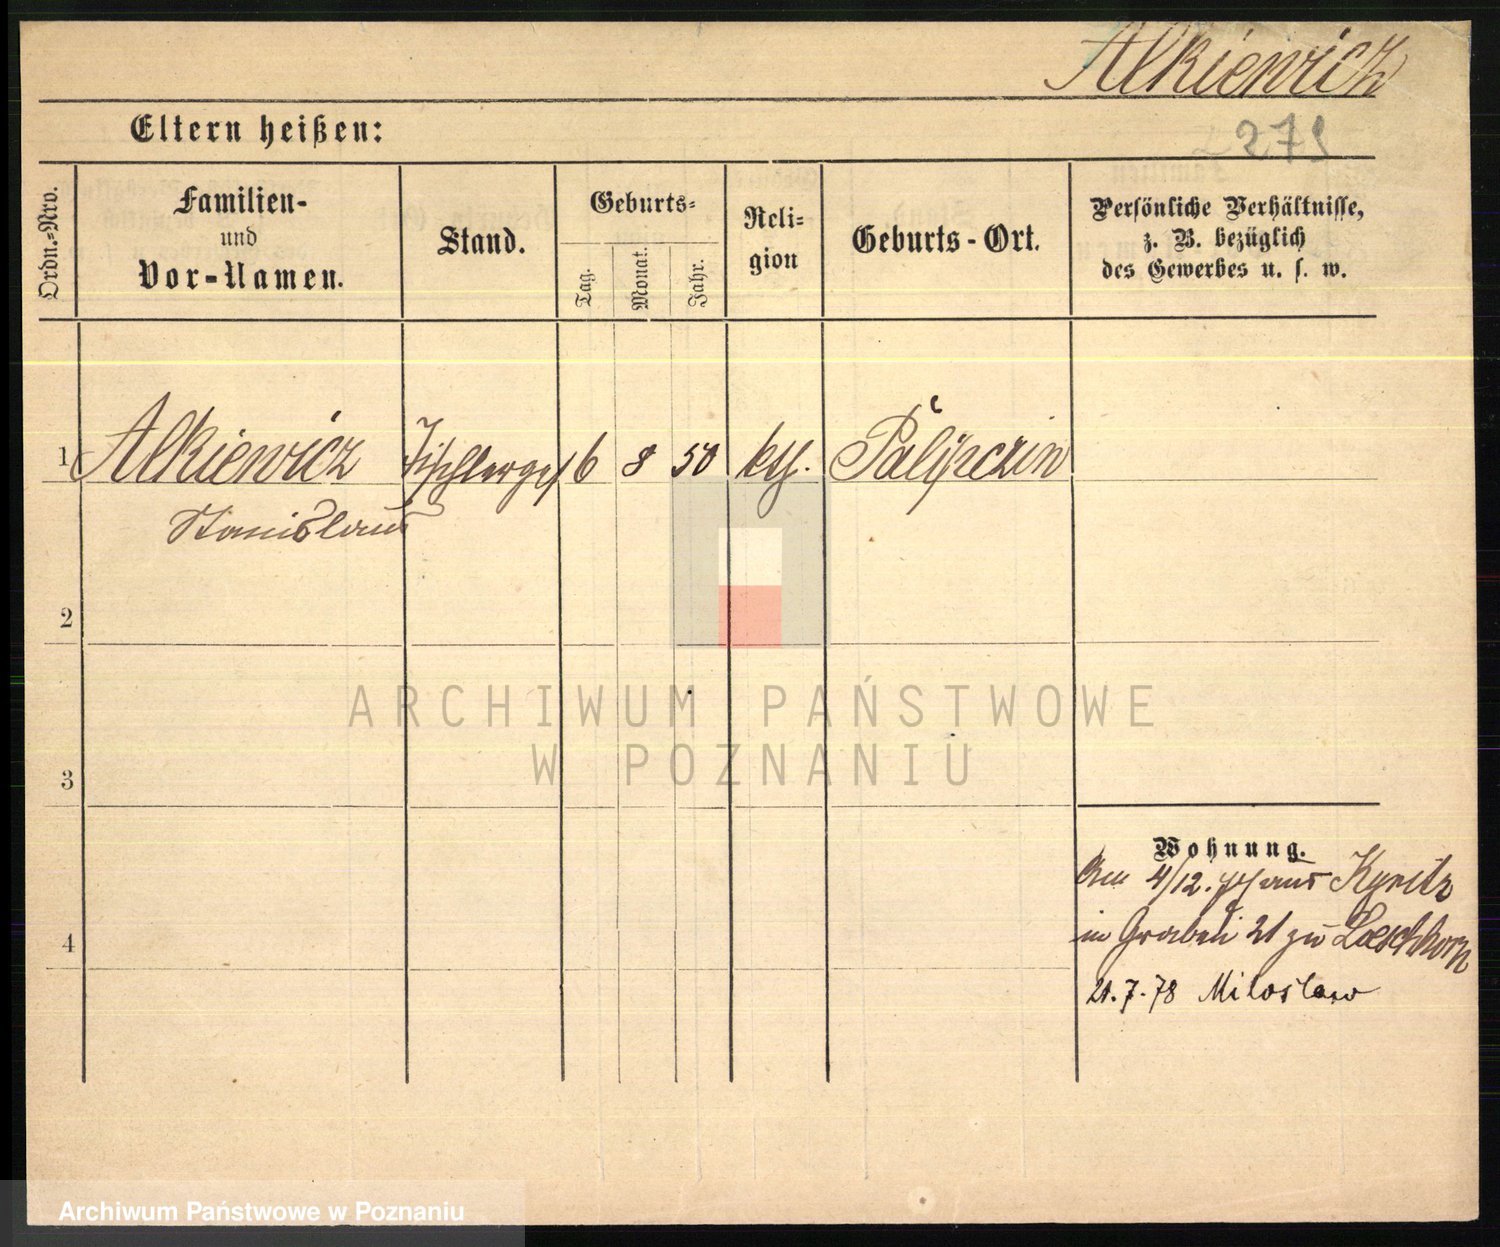 Alkiewicz
Eltern heißen:
271
Ordn.-Nro.
Familien-
und
Vor-Namen.
Stand.
Geburts-
Tag.
Monat.
Jahr.
Reli-
gion
Geburts-Ort.
Persönliche Verhältnisse,
z. B. bezüglich
des Gewerbes u. s. w.
1 Alkiewicz Tischlerges 6 8 50 kth.
Stanislaus
2
3
4
Wohnung.
Am 4/12. aus Kyritz
in Graben 21 zu Loeschhorn
21.7.78 Miloslaw
ARCHIWUM PAŃSTWOWE
W POZNANIU
Archiwum Państwowe w Poznaniu